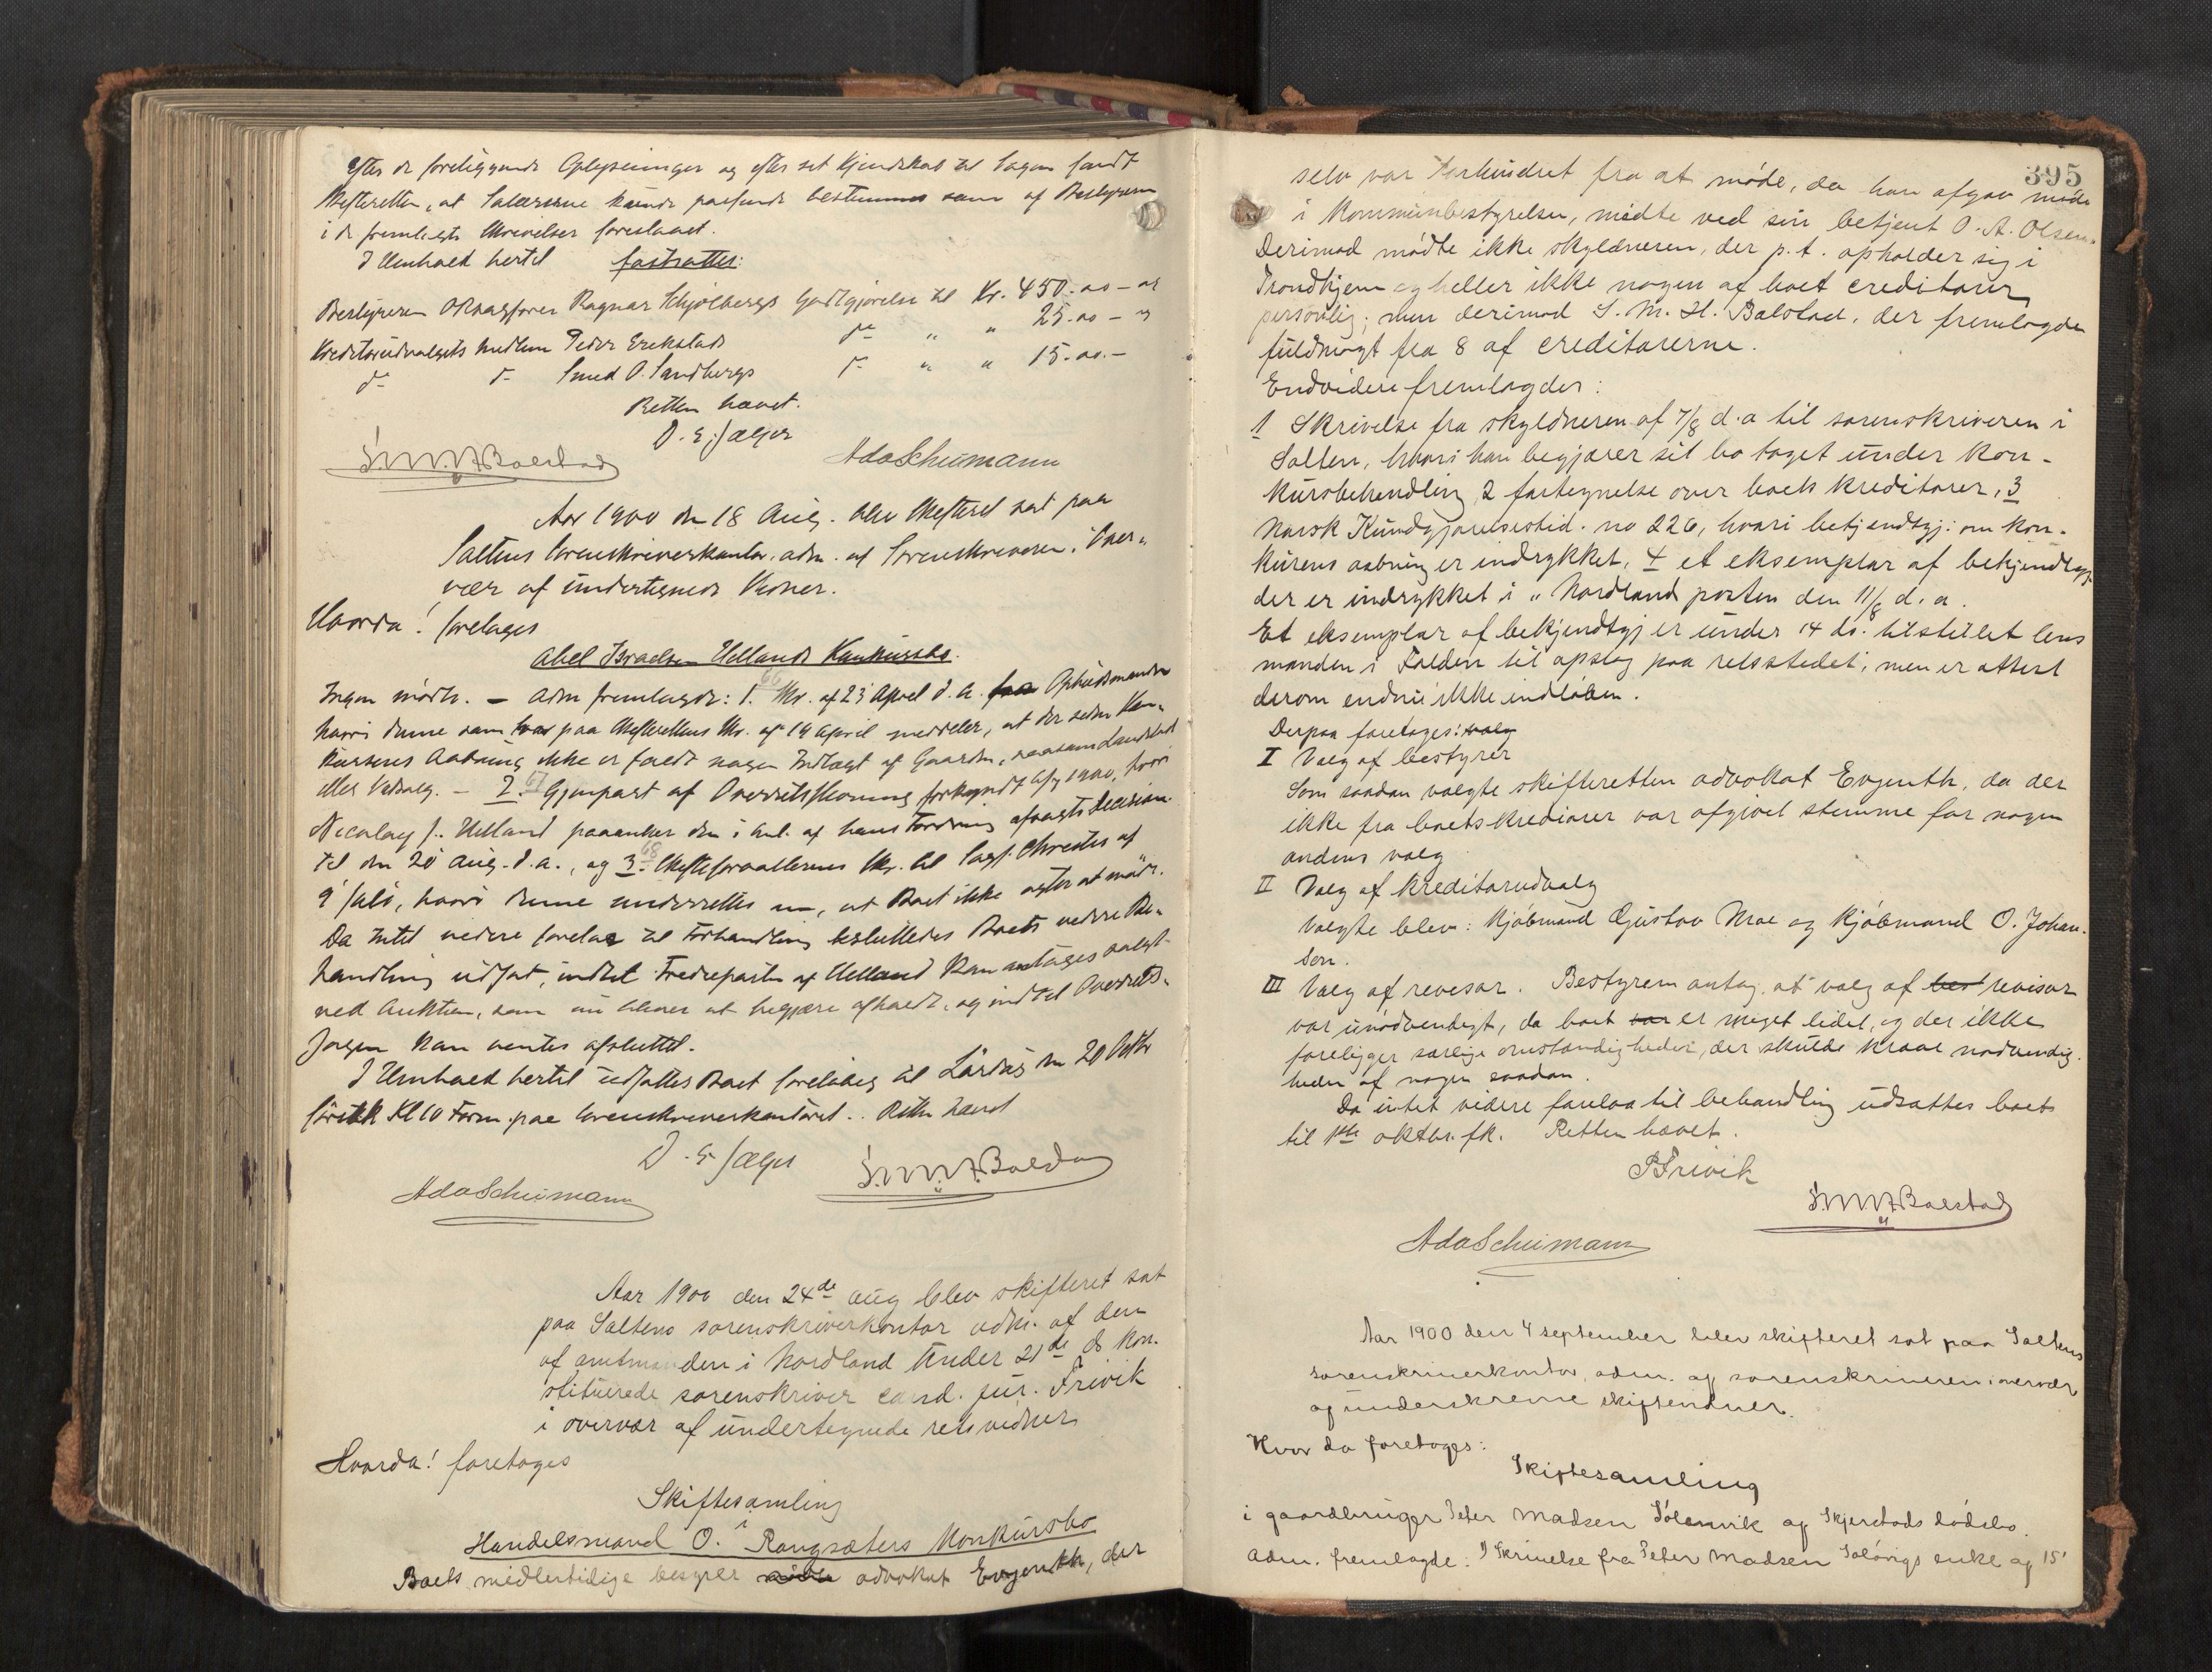 efter de foreliggende Oplysninger og efter sit Kjendskab til Sagen fandt
Skifteretten, at Salærerne kunde passende bestemmes som af Bestyreren
i de fremlagte Skrivelser foreslaaet.
I Henhold hertil fastsattes:
Bestyreren Overretssagfører Ragnar Schjølbergs Godtgjørelse til Kr. 450.00 – or
Kreditorudvalgets Medlem Peder Erekstads do " " 25.00 – "
do do Smed O. Sandbergs do " " 15.00. –
Retten hævet.
D. E. Jæger
S.M.H.Balstad AdaScheumann
Aar 1900 den 18 Aug. blev Skifteret sat paa
Saltens Sorenskriverkontor, adm. af Sorenskriveren, i Over-
vær af undertegnede Vidner.
Hvorda! foretages
Abel Israelsen Hellands Konkursbo.
Ingen mødte. – Adm fremlagde: 1. Skr. af 23 April d. A. fra Ophudsmanden
hvori denne som svar paa Skifterettens Skr. af 19 April meddeler, at der siden Kon-
kursens Aabning ikke er faldt nogen Indtægt af Gaarden, saasom Landskyld
eller Vedsalg. – 2. Gjenpart af Overretsstevning forkyndt 1900, hvori
Nicolay J. Helland paaanker den i Anl. af hans Fordring afsagte Decision
til den 20 Aug. d. a., og 3. Skifteforvalterens Skr. til Sagf. Christie af
9 Juli, hvori denne underrettes om, at Boet ikke agter at møde.
Da Intet videre forelaa til Forhandling besluttedes Boets videre Be-
handling udsat, indtil Trediepartn af Helland kan antages solgt
ved Auktion, som nu bliver at begjære afholdt, og indtil Overrets-
sagen kan ventes afsluttet.
I Henhold hertil udsattes Boet foreløbig til Lørdag den 20 Oktbr
førstk Kl 10 Form. paa Sorenskriverkontoret. Retten hævet
D. E. Jæger S.M.H.Balstad
AdaScheumann
Aar 1900 den 24de aug blev skifteret sat
paa Saltens sorenskriverkontor adm. af den
af amtmanden i Nordland under 21de ds kon-
stituerede sorenskriver cand. jur. Frivik
i overvær af undertegnede retsvidner
Hvorda! foretages
Skiftesamling
i
Handelsmand O. Rangsæters Konkursbo
Boets midlertidige besyrer advokat Evjenth, der
395
selv var forhindret fra at møde, da han afgav møde
i Kommunbestyrelsen, mødte ved sin betjent O. A. Olsen.
Derimod mødte ikke skyldneren, der p. t. opholder sig i
Trondhjem og heller ikke nogen af boet creditorer
personlig; men derimod S. M. H. Balstad, der fremlagde
fuldmagt fra 8 af creditorerne.
Endvidere fremlagdes:
1 Skrivelse fra skyldneren af 7/8 d. a til sorenskriveren i
Salten, hvori han begjærer sit bo taget under kon-
kursbehandling, 2 fortegnelse over boets kreditorer, 3
Norsk Kundgjørelsestid. no 226, hvori bekjendtgj: om kon-
kursens aabning er indrykket, 4 et eksemplar af bekjendtgj.
der er indrykket i „Nordlandsposten den 11/8 d. a.
Et eksemplar af bekjendtgj er under 14 ds. tilstillet lens
manden i Folden til opslag paa retsstedet, men er attest
derom endnu ikke indløben.
Derpaa foretages: valg
I Valg af bestyrer
Som saadan valgte skifteretten advokat Evjenth, da der
ikke fra boets krediorer var afgivet stemme for nogen
andens valg
II Valg af kreditorudvalg
Valgte blev: Kjøbmand Gustav Moe og Kjøbmand O. Johan-
sen.
III Valg af revisor. Bestyreren antog at valg af best revisor
var unødvendigt, da boet var er meget lidet, og der ikke
foreligger særlige omstændigheder, der skulde kræve nødvendig-
heden af nogen saadan.
Da intet videre forelaa til behandling udsattes boets
til 1ste oktbr. fk. Retten hævet.
PFrivik
S.M.H.Balstad
AdaScheumann
Aar 1900 den 4 september blev skifteret sat paa Saltens
sorenskriverkontor, adm. af sorenskriveren i overvær
af underskrevne skiftevidner.
Hvor da foretages:
Skiftesamling
i gaardbruger Peter Madsen Sölenvik af Skjerstads dødsbo.
Adm. fremlagde: 1 Skrivelse fra Peter Madsen Solövigs enke af 15'